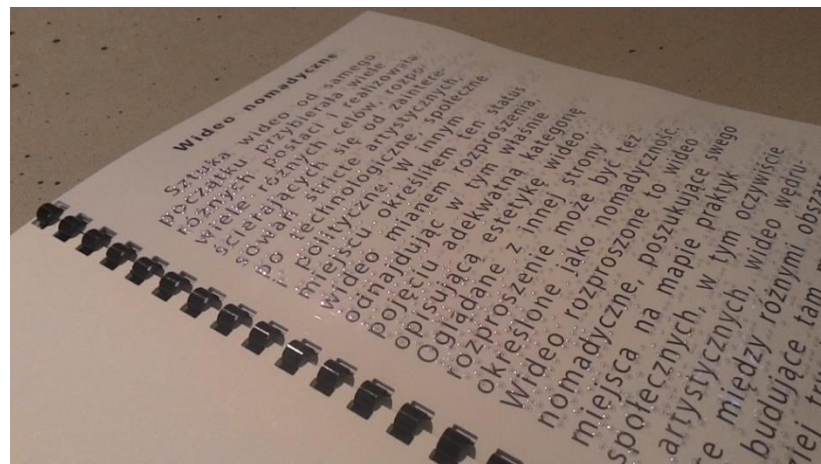 Wideo nomadyczne
Sztuka wideo od samego
początku przybierała wiele
różnych postaci i realizowała
wiele różnych celów, rozpo-
ścierających się od zaintere-
sowań stricte artystycznych,
po technologiczne, społeczne
i polityczne. W innym
miejscu określiłem ten status
wideo mianem rozproszenia,
odnajdując w tym właśnie
pojęciu adekwatną kategorię
opisującą estetykę wideo.
Oglądane z innej strony
rozproszenie może być też
określone jako nomadyczność.
Wideo rozproszone to wideo
nomadyczne, poszukujące swego
miejsca na mapie praktyk
społecznych, w tym oczywiście
artystycznych, wideo wędru-
między różnymi
budujące tam